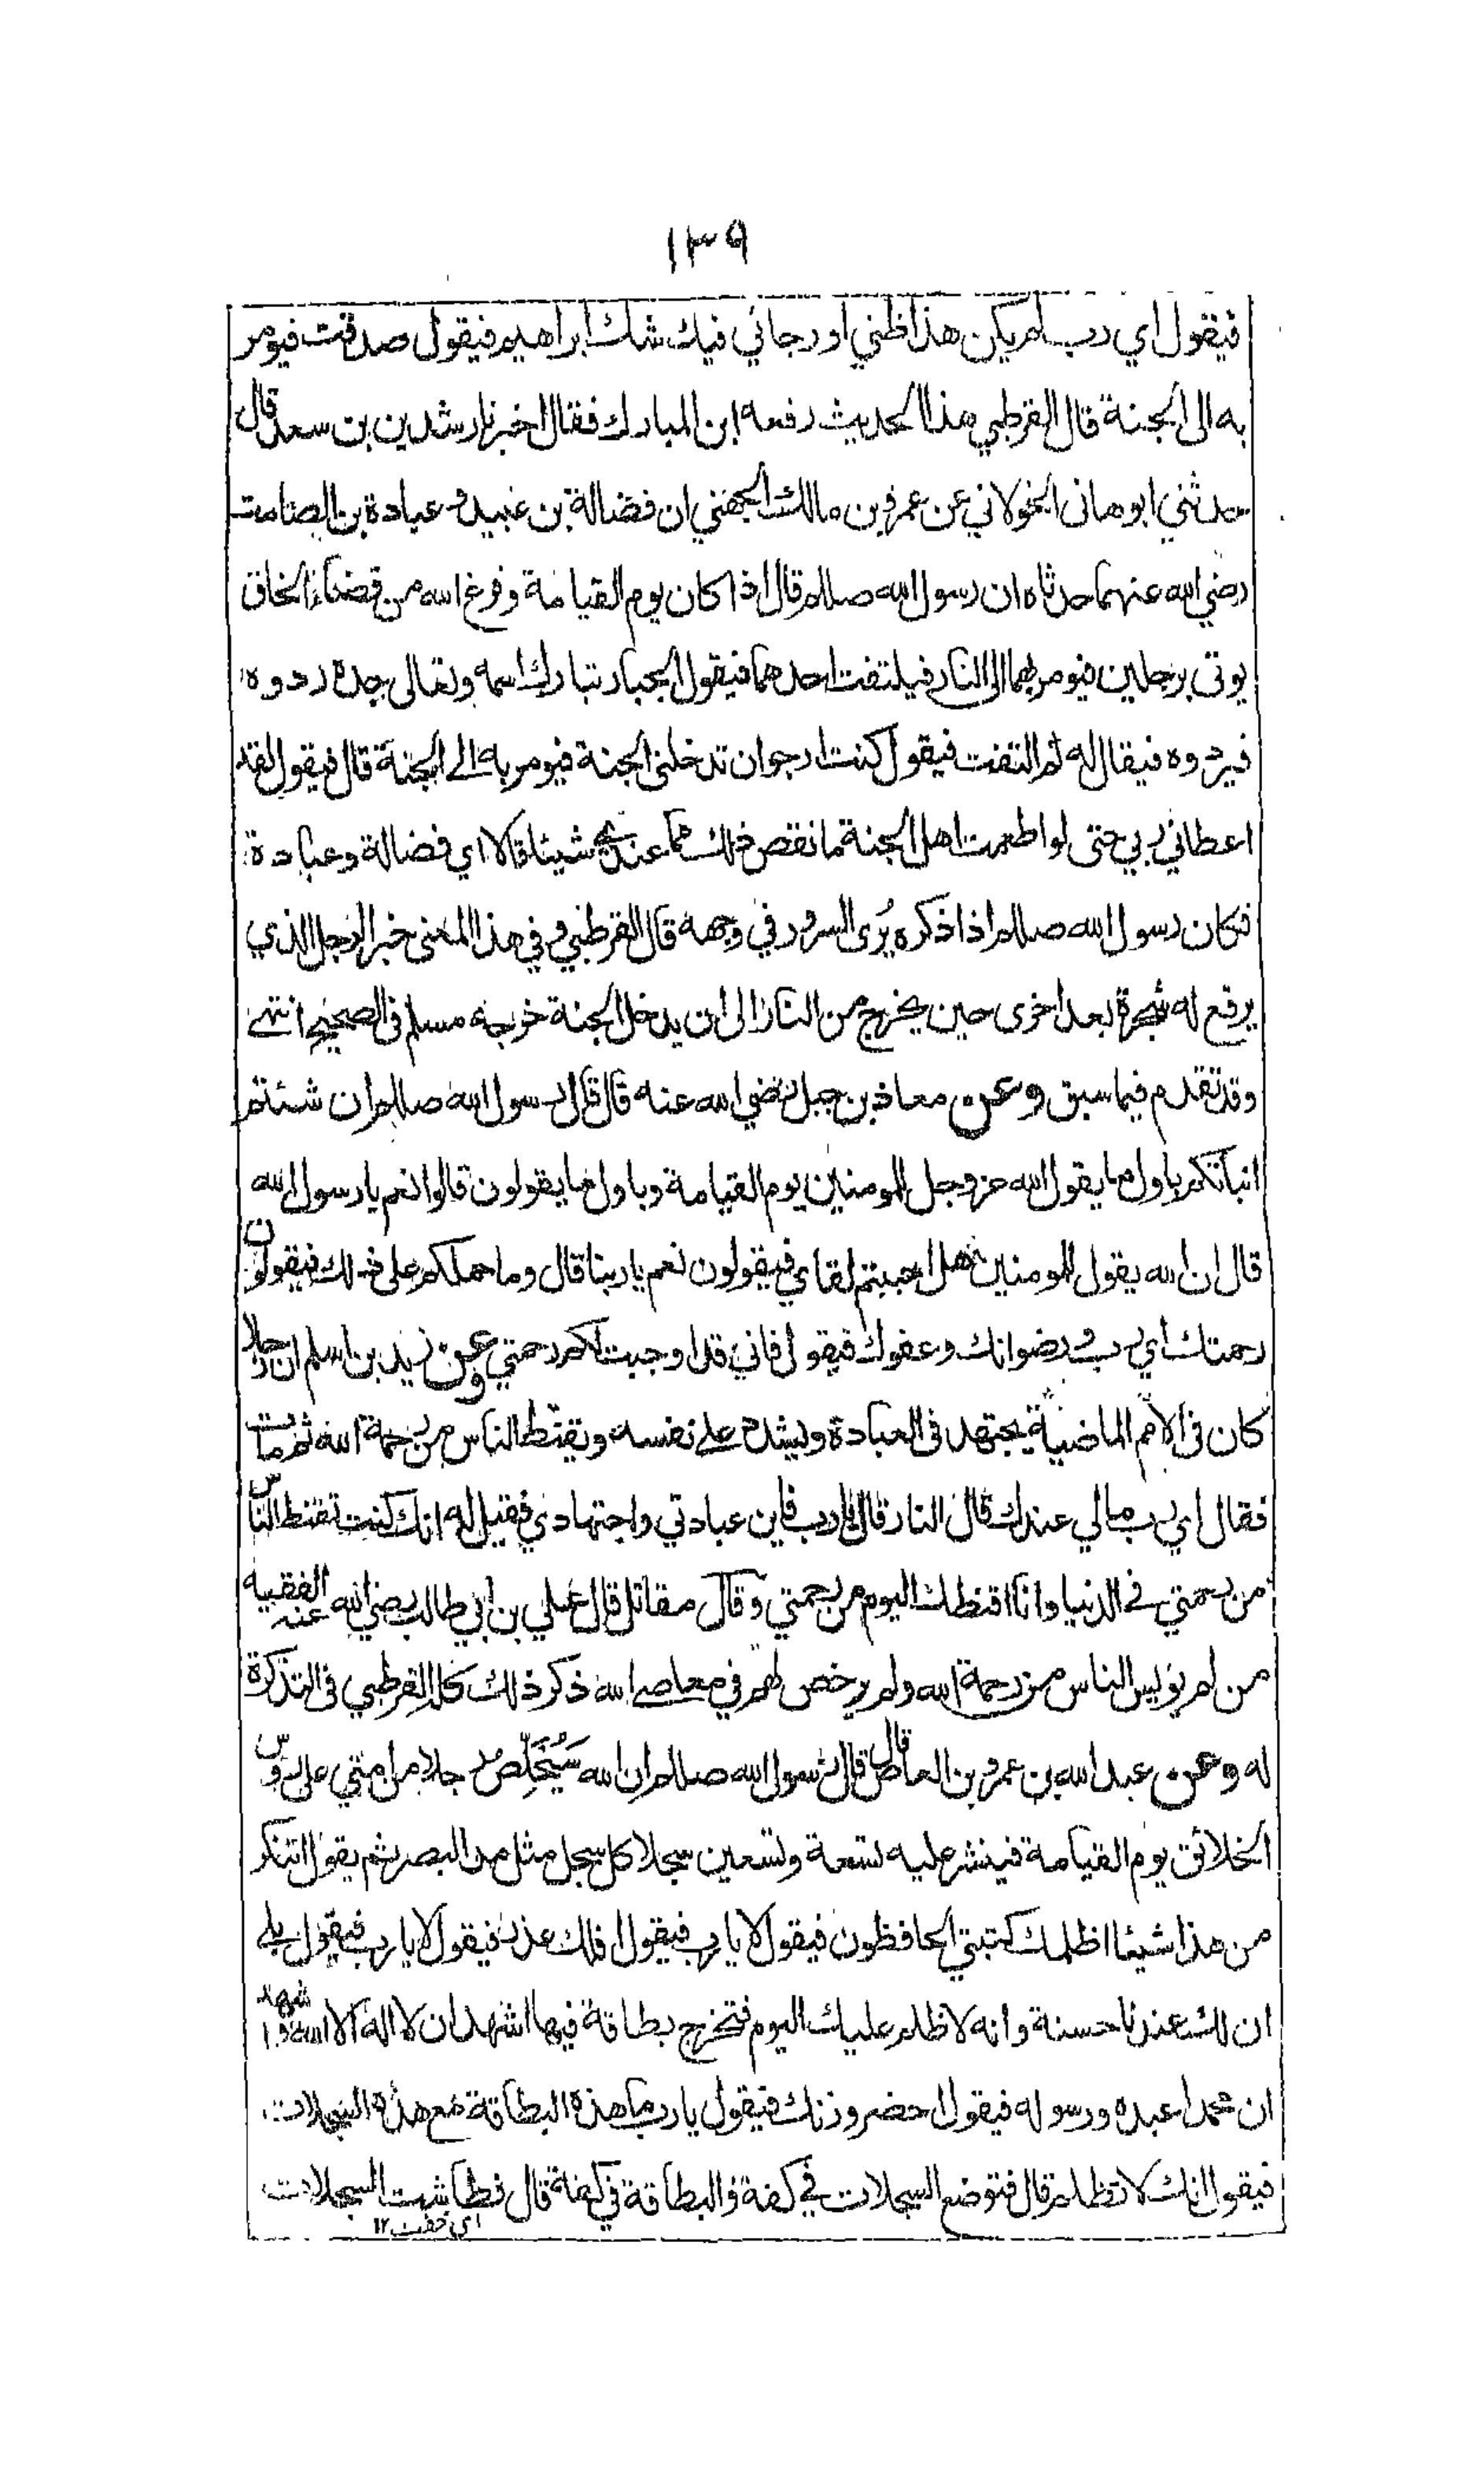 ١٣٩
فيقول اي رب لم يكن هذا ظني او رجائي فيك شك ابراهيم فيقول صدقت فيومر
به الى الجنة قال القرطبي هذا الحديث رفعه ابن المبارك فقال اخبرنا رشدين بن سعد قال
حدثني ابو هانى الخولاني عن عمرو بن مالك الجهني ان فضالة بن عبيد و عبادة بن الصامت
رضي الله عنهما حدثاه ان رسول الله صللم قال اذا كان يوم القيامة وفرغ الله من قضاء الخلق
يوتى برجلين فيومر بهما الى النار فيلتفت احدهما فيقول الجبار تبارك اسمه وتعالى جده ردوه
فيردوه فيقال له لم التفت فيقول كنت ارجو ان تدخلني الجنة فيومر به الى الجنة قال فيقول لقد
اعطاني ربي حتى لو اطعمت اهل الجنة ما نقص ذلك مما عندي شيئا قالا اي فضالة وعبادة
فكان رسول الله صللم اذا ذكره يُرى السرور في وجهه قال القرطبي و في هذا المعنى خبر الرجل الذي
يرفع له شجرة بعد اخرى حين يخرج من النار الى ان يدخل الجنة خرجه مسلم فى الصحيح انتهى
وقد تقدم فيما سبق وعن معاذ بن جبل رضي الله عنه قال قال رسول الله صللم ان شئتم
انبأتكم باول ما يقول الله عز وجل للمومنين يوم القيامة وباول ما يقولون قالوا نعم يا رسول الله
قال ان الله يقول للمومنين هل احببتم لقاءي فيقولون نعم يا ربنا قال وما حملكم على ذلك فيقولون
رحمتك اي رب و رضوانك وعفوك فيقول فاني قد اوجبت لكم رحمتي وعن زيد بن اسلم ان رجلا
كان فى الامم الماضية يجتهد فى العبادة ويشدد على نفسه ويقنط الناس من رحمة الله ثم مات
فقال اي رب ما لي عندك قال النار قال يا رب فاين عبادتي واجتهادي فقيل له انك كنت تقنط الناس
من رحمتي فى الدنيا وانا اقنطك اليوم من رحمتي وقال مقاتل قال علي بن ابي طالب رضي الله عنه الفقيه
من لم يؤيس الناس من رحمة الله ولم يرخص لهم في معاصي الله ذكر ذلك كله القرطبي فى التذكرة
له وعن عبد الله بن عمرو بن العاص قال قال رسول الله صللم ان الله سَيُخَلِّصُ رجلا من امتي على رؤس
الخلائق يوم القيامة فينشر عليه تسعة وتسعين سجلا كل سجل مثل مد البصر ثم يقول اتنكر
من هذا شيئا اظلمك كتبتي الحافظون فيقول لا يا رب فيقول افلك عذر فيقول لا يا رب فيقول بلى
ان لك عندنا حسنة وانه لا ظلم عليك اليوم فتخرج بطاقة فيها اشهد ان لا اله الا الله واشهد
ان محمدا عبده ورسوله فيقول احضر وزنك فيقول يا رب ما هذه البطاقة مع هذه السجلات
فيقول انك لا تظلم قال فتوضع السجلات في كفة والبطاقة في كفة قال فطاشت السجلات
اي خفت ١٢